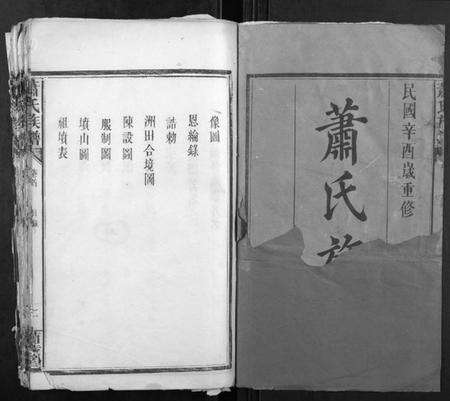 民國辛酉歲重修
蕭氏族
像圖
恩綸錄
誥勅
洲田合境圖
陳設圖
服制圖
墳山圖
祖墳表
蕭氏族譜